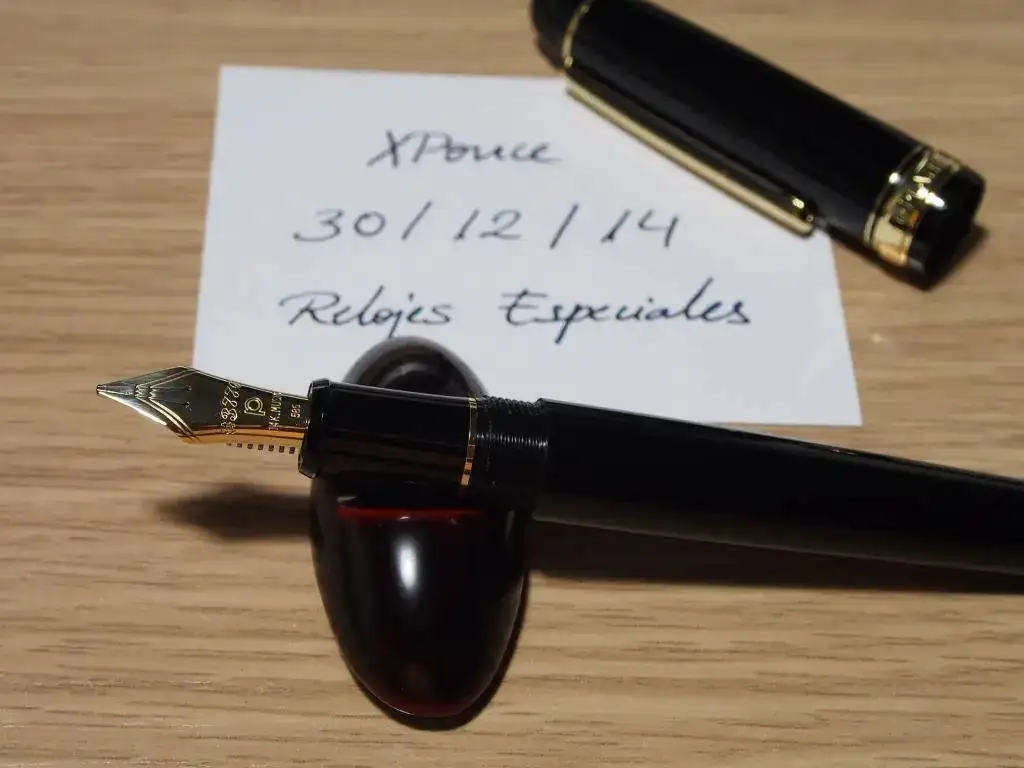 XPonce
30/12/14
Relojes Especiales
585